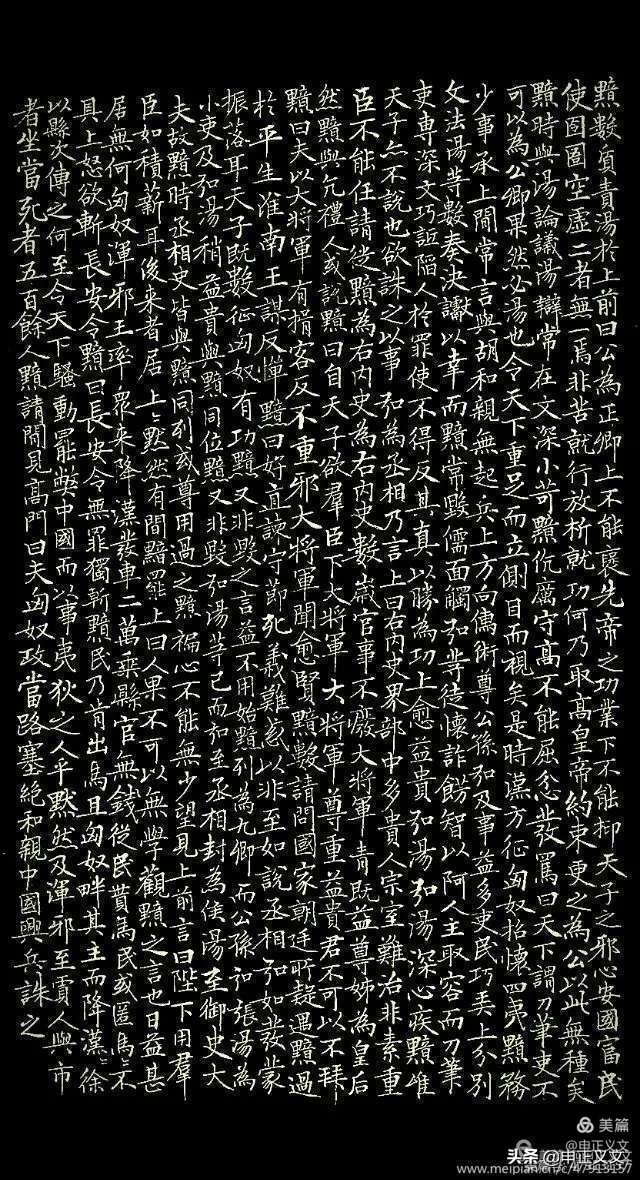 黯數質責湯於上前曰公為正卿上不能襃先帝之功業下不能抑天子之邪心安國富民
使囹圄空虛二者無一焉非苦就行放析就功何乃取高皇帝約束更之為公以此無種矣
黯時與湯論議湯辯常在文深小苛黯伉厲守高不能屈忿發罵曰天下謂刀筆吏不
可以為公卿果然必湯也令天下重足而立側目而視矣是時漢方征匈奴招懷四夷黯務
少事承上間常言與胡和親無起兵上方向儒術尊公孫弘及事益多吏民巧弄上分別
文法湯等數奏決讞以幸而黯常毀儒面觸弘等徒懷詐飾智以阿人主取容而刀筆
吏專深文巧詆陷人於罪使不得反其真以勝為功上愈益貴弘湯弘湯深心疾黯唯
天子亦不說也欲誅之以事弘為丞相乃言上曰右內史界部中多貴人宗室難治非素重
臣不能任請徙黯為右內史為右內史數歲官事不廢大將軍青既益尊姊為皇后
然黯與亢禮人或說黯曰自天子欲羣臣下大將軍大將軍尊重益貴君不可以不拜
黯曰夫以大將軍有揖客反不重邪大將軍聞愈賢黯數請問國家朝廷所疑遇黯過
於平生淮南王謀反憚黯曰好直諫守節死義難惑以非至如說丞相弘如發蒙
振落耳天子既數征匈奴有功黯又非毀之言益不用始黯列為九卿而公孫弘張湯為
小吏及弘湯稍益貴與黯同位黯又非毀弘湯等已而弘至丞相封為侯湯至御史大
夫故黯時丞相史皆與黯同列或尊用過之黯褊心不能無少望見上前言曰陛下用羣
臣如積薪耳後來者居上上默然有間黯罷上曰人果不可以無學觀黯之言也日益甚
居無何匈奴渾邪王率眾來降漢發車二萬乘縣官無錢從民貰馬民或匿馬不
具上怒欲斬長安令黯曰長安令無罪獨斬黯民乃肯出馬且匈奴畔其主而降漢漢徐
以縣次傳之何至令天下騷動罷弊中國而以事夷狄之人乎默然及渾邪至賈人與市
者坐當死者五百餘人黯請間見高門曰夫匈奴攻當路塞絕和親中國興兵誅之
美篇
@申正义文
头条 @申正义文
www.meipian.cn/c/47913157